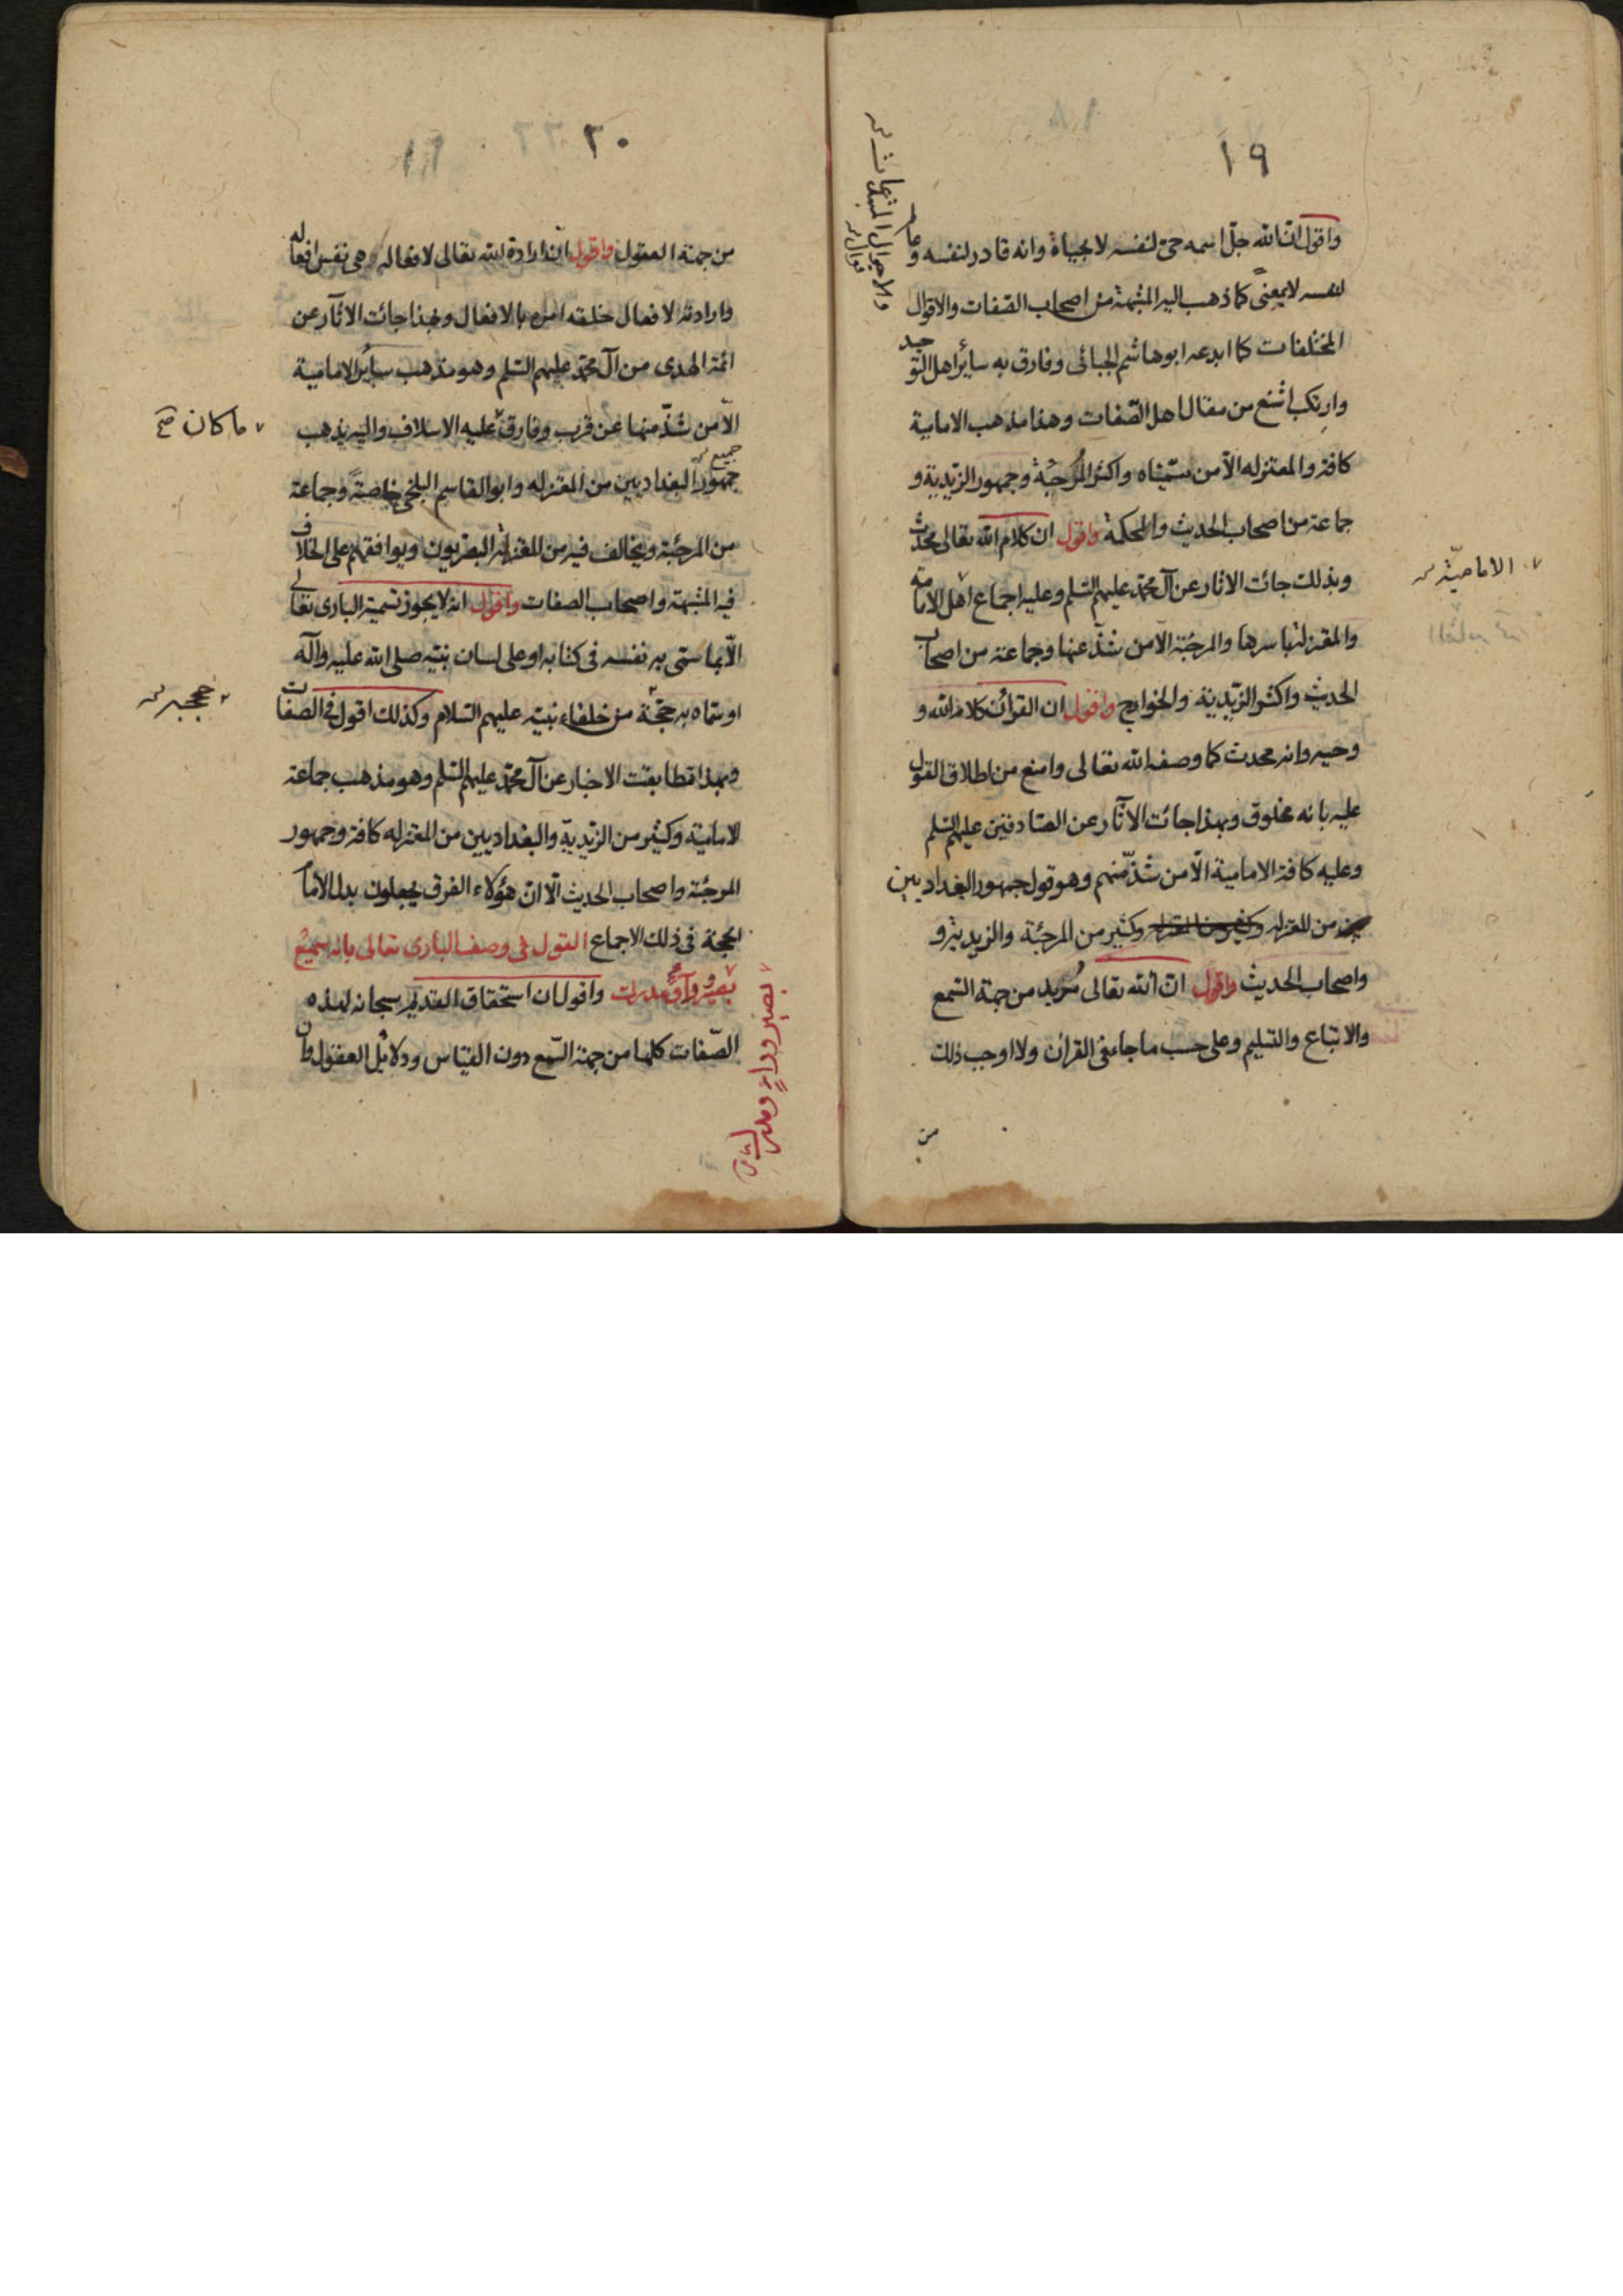 ١٩
واقول ان الله جل اسمه حى لنفسه لا بحياة وانه قادر لنفسه وعالم
لنفسه لا بمعنى كما ذهب اليه المشبهة من اصحاب الصفات والاقوال
المختلفات كما ابدعه ابو هاشم الجبائى وفارق به سائر اهل التوحيد
وارتكب اشنع من مقال اهل الصفات وهذا مذهب الامامية
كافة والمعتزله الا من سميناه واكثر المرجئة وجمهور الزيدية و
جماعة من اصحاب الحديث والمحكمة واقول ان كلام الله تعالى محدث
وبذلك جائت الاثار عن آل محمد عليهم السلم وعليه اجماع اهل الامامة
الامامية
والمعتزلة باسرها والمرجئة الا من شذ عنها وجماعة من اصحاب
الحديث واكثر الزيدية والخوارج واقول ان القرآن كلام الله و
وحيه وانه محدث كما وصفه الله تعالى وامنع من اطلاق القول
عليه بانه مخلوق وبهذا جائت الآثار عن الصادقين عليهم السلم
وعليه كافة الامامية الا من شذ منهم وهو قول جمهور البغداديين
من المعتزله وكثير من المرجئة والزيدية و
واصحاب الحديث واقول ان الله تعالى مريد من جهة السمع
والاتباع والتسليم وعلى حسب ما جاء فى القرآن ولا اوجب ذلك
من
٢٠
من جهة العقول واقول ان ارادة الله تعالى لافعاله هى نفس افعاله
وارادته لافعال خلقه امره بالافعال وبهذا جائت الآثار عن
ائمة الهدى من آل محمد عليهم السلم وهو مذهب ساير الامامية
الا من شذ منها عن قرب وفارق عليه الاسلاف واليه يذهب
ما كان صح
جميع
جمهور البغداديين من المعتزله وابو القاسم البلخى خاصة وجماعة
من المرجئة ويخالف فيه من المعتزلة البصريون ويوافقهم على الخلاف
فيه المشبهة واصحاب الصفات واقول انه لا يجوز تسمية البارى تعالى
الا بما سمى به نفسه فى كتابه او على لسان نبيه صلى الله عليه وآله
او سماه به حجة من خلفاء نبيه عليهم السلام وكذلك اقول فى الصفات
حججه
وبهذا تطابقت الاخبار عن آل محمد عليهم السلم وهو مذهب جماعة
الامامية وكثير من الزيدية والبغداديين من المعتزله كافة وجمهور
المرجئة واصحاب الحديث الا ان هؤلاء الفرق يجعلون بدل الامام
الحجة فى ذلك الاجماع القول فى وصف البارى تعالى بانه سميع
بصير وراء مدرك واقول ان استحقاق القديم سبحانه لهذه
الصفات كلها من جهة السمع دون القياس ودلائل العقول وان